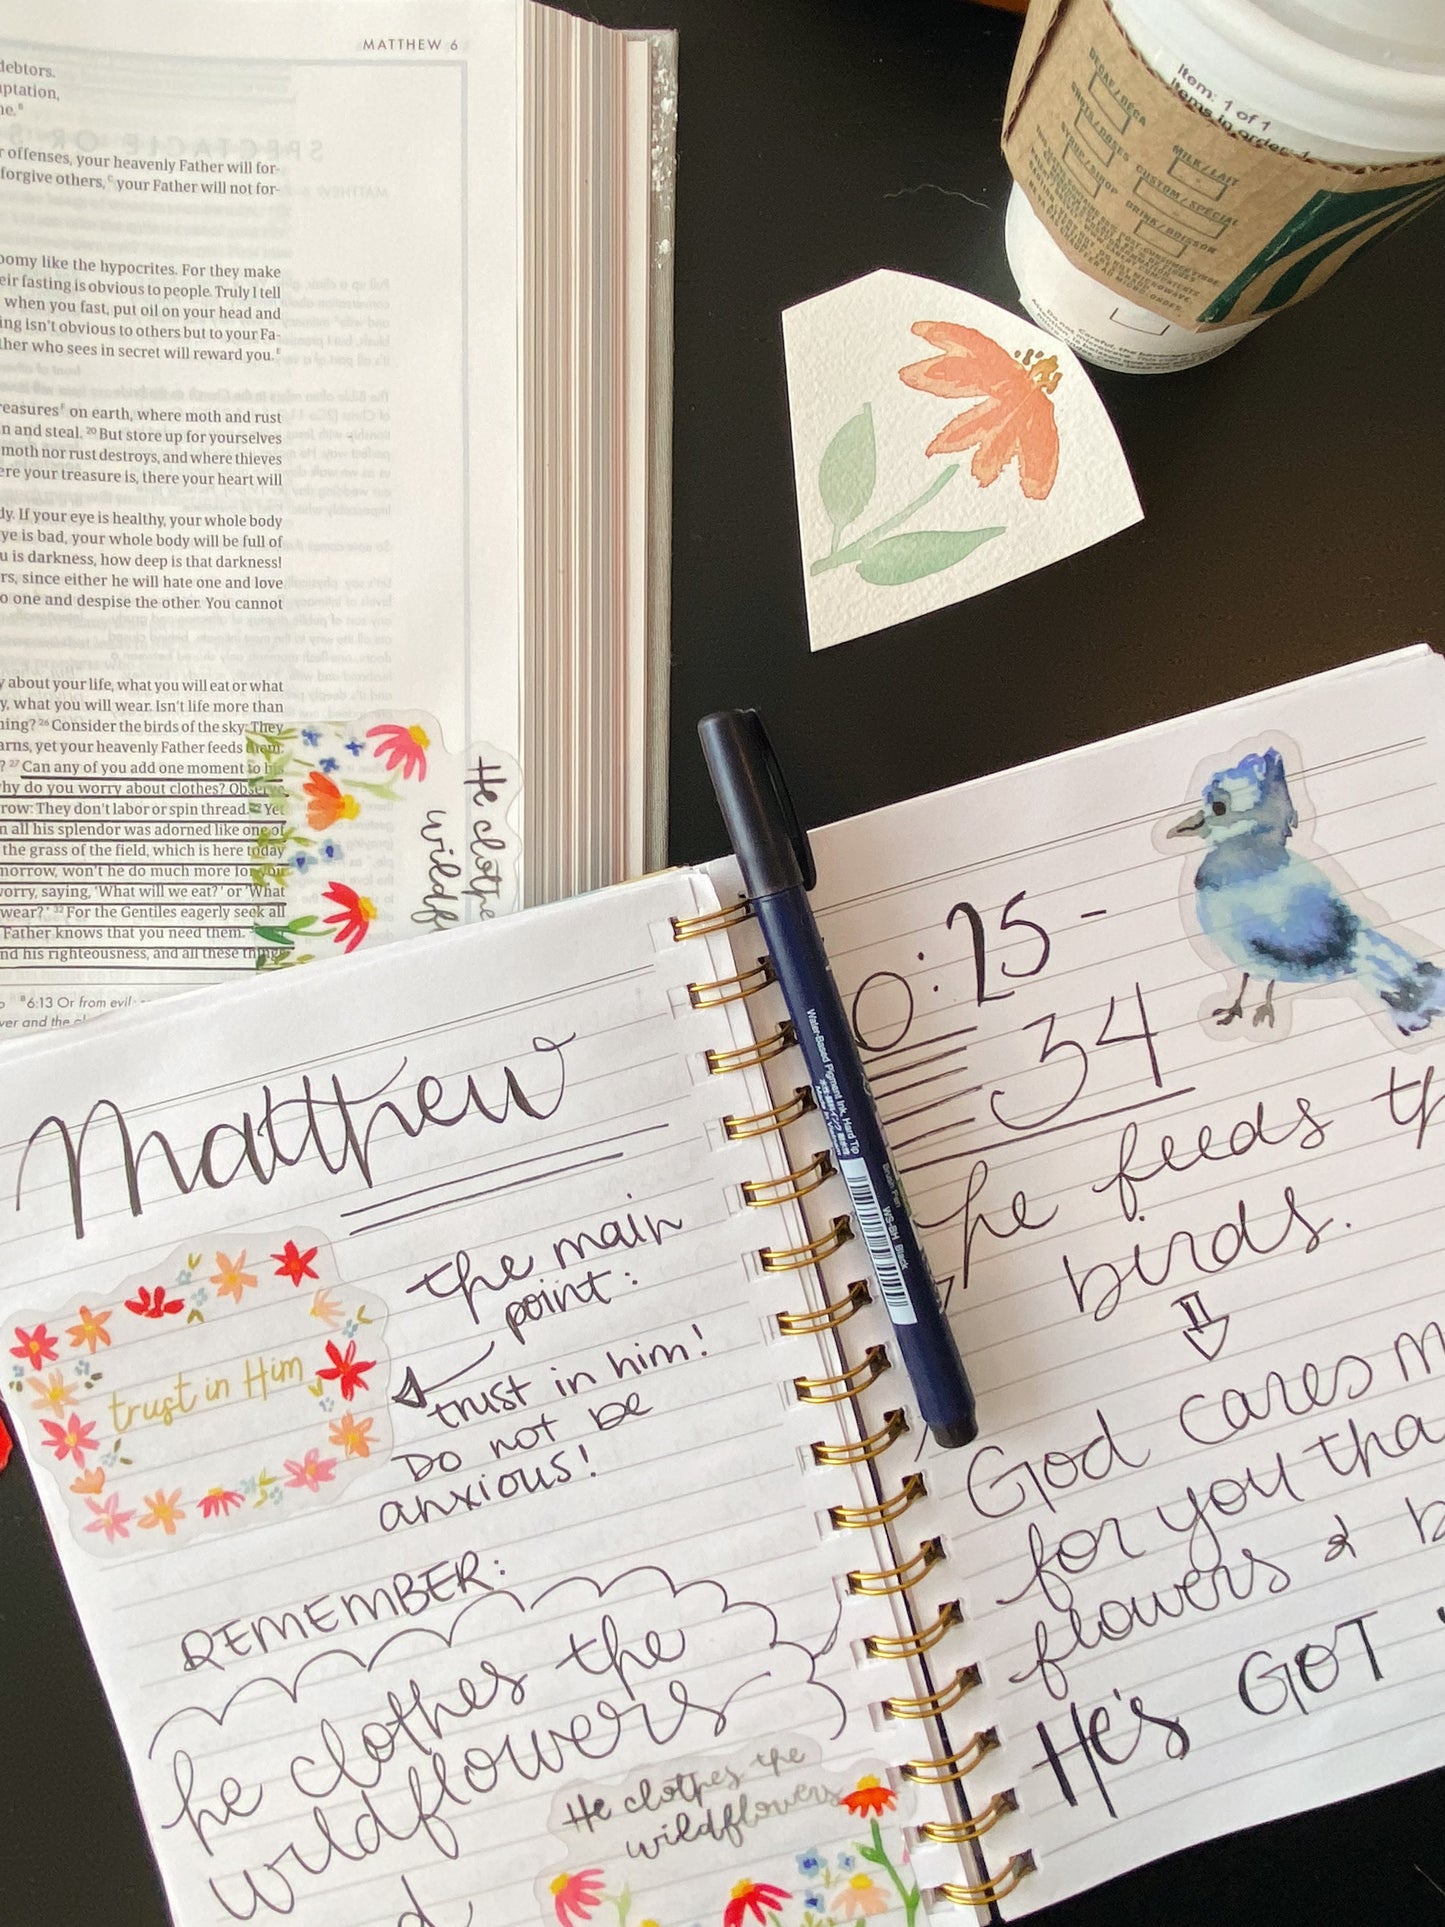 MATTHEW 6
debtors.
offenses, your heavenly Father will for-
forgive others,ᶜ your Father will not for-
like the hypocrites. For they make
fasting is obvious to people. Truly I tell
when you fast, put oil on your head and
isn't obvious to others but to your Fa-
ther who sees in secret will reward you.ᴱ
on earth, where moth and rust
and steal. 20 But store up for yourselves
moth nor rust destroys, and where thieves
your treasure is, there your heart will
If your eye is healthy, your whole body
is bad, your whole body will be full of
is darkness, how deep is that darkness!
since either he will hate one and love
one and despise the other. You cannot
about your life, what you will eat or what
what you will wear. Isn't life more than
26 Consider the birds of the sky: They
yet your heavenly Father feeds them.
? 27 Can any of you add one moment to his
why do you worry about clothes? Observe
They don't labor or spin thread. 29 Yet
all his splendor was adorned like one of
the grass of the field, which is here today
won't he do much more for you
saying, 'What will we eat?' or 'What
wear?' 32 For the Gentiles eagerly seek all
Father knows that you need them.
his righteousness, and all these things
6:13 Or from evil
and the
He clothe
wildf
Item: 1 of 1
Items in order: 1
DECAF/DECA
SHOTS/DOSES
SYRUP/SIROP
MILK/LAIT
CUSTOM/SPÉCIAL
DRINK/BOISSON
Matthew
trust in Him
the main
point:
trust in him!
Do not be
anxious!
REMEMBER:
he clothes the
wildflowers
He clothes the
wildflowers
Water-Based Pigment Ink, Hard Tip
Made in Vietnam
Brush Pen
WS-BH Black
:25-
34
he feeds
birds.
God cares
for you
flowers &
He's GOT